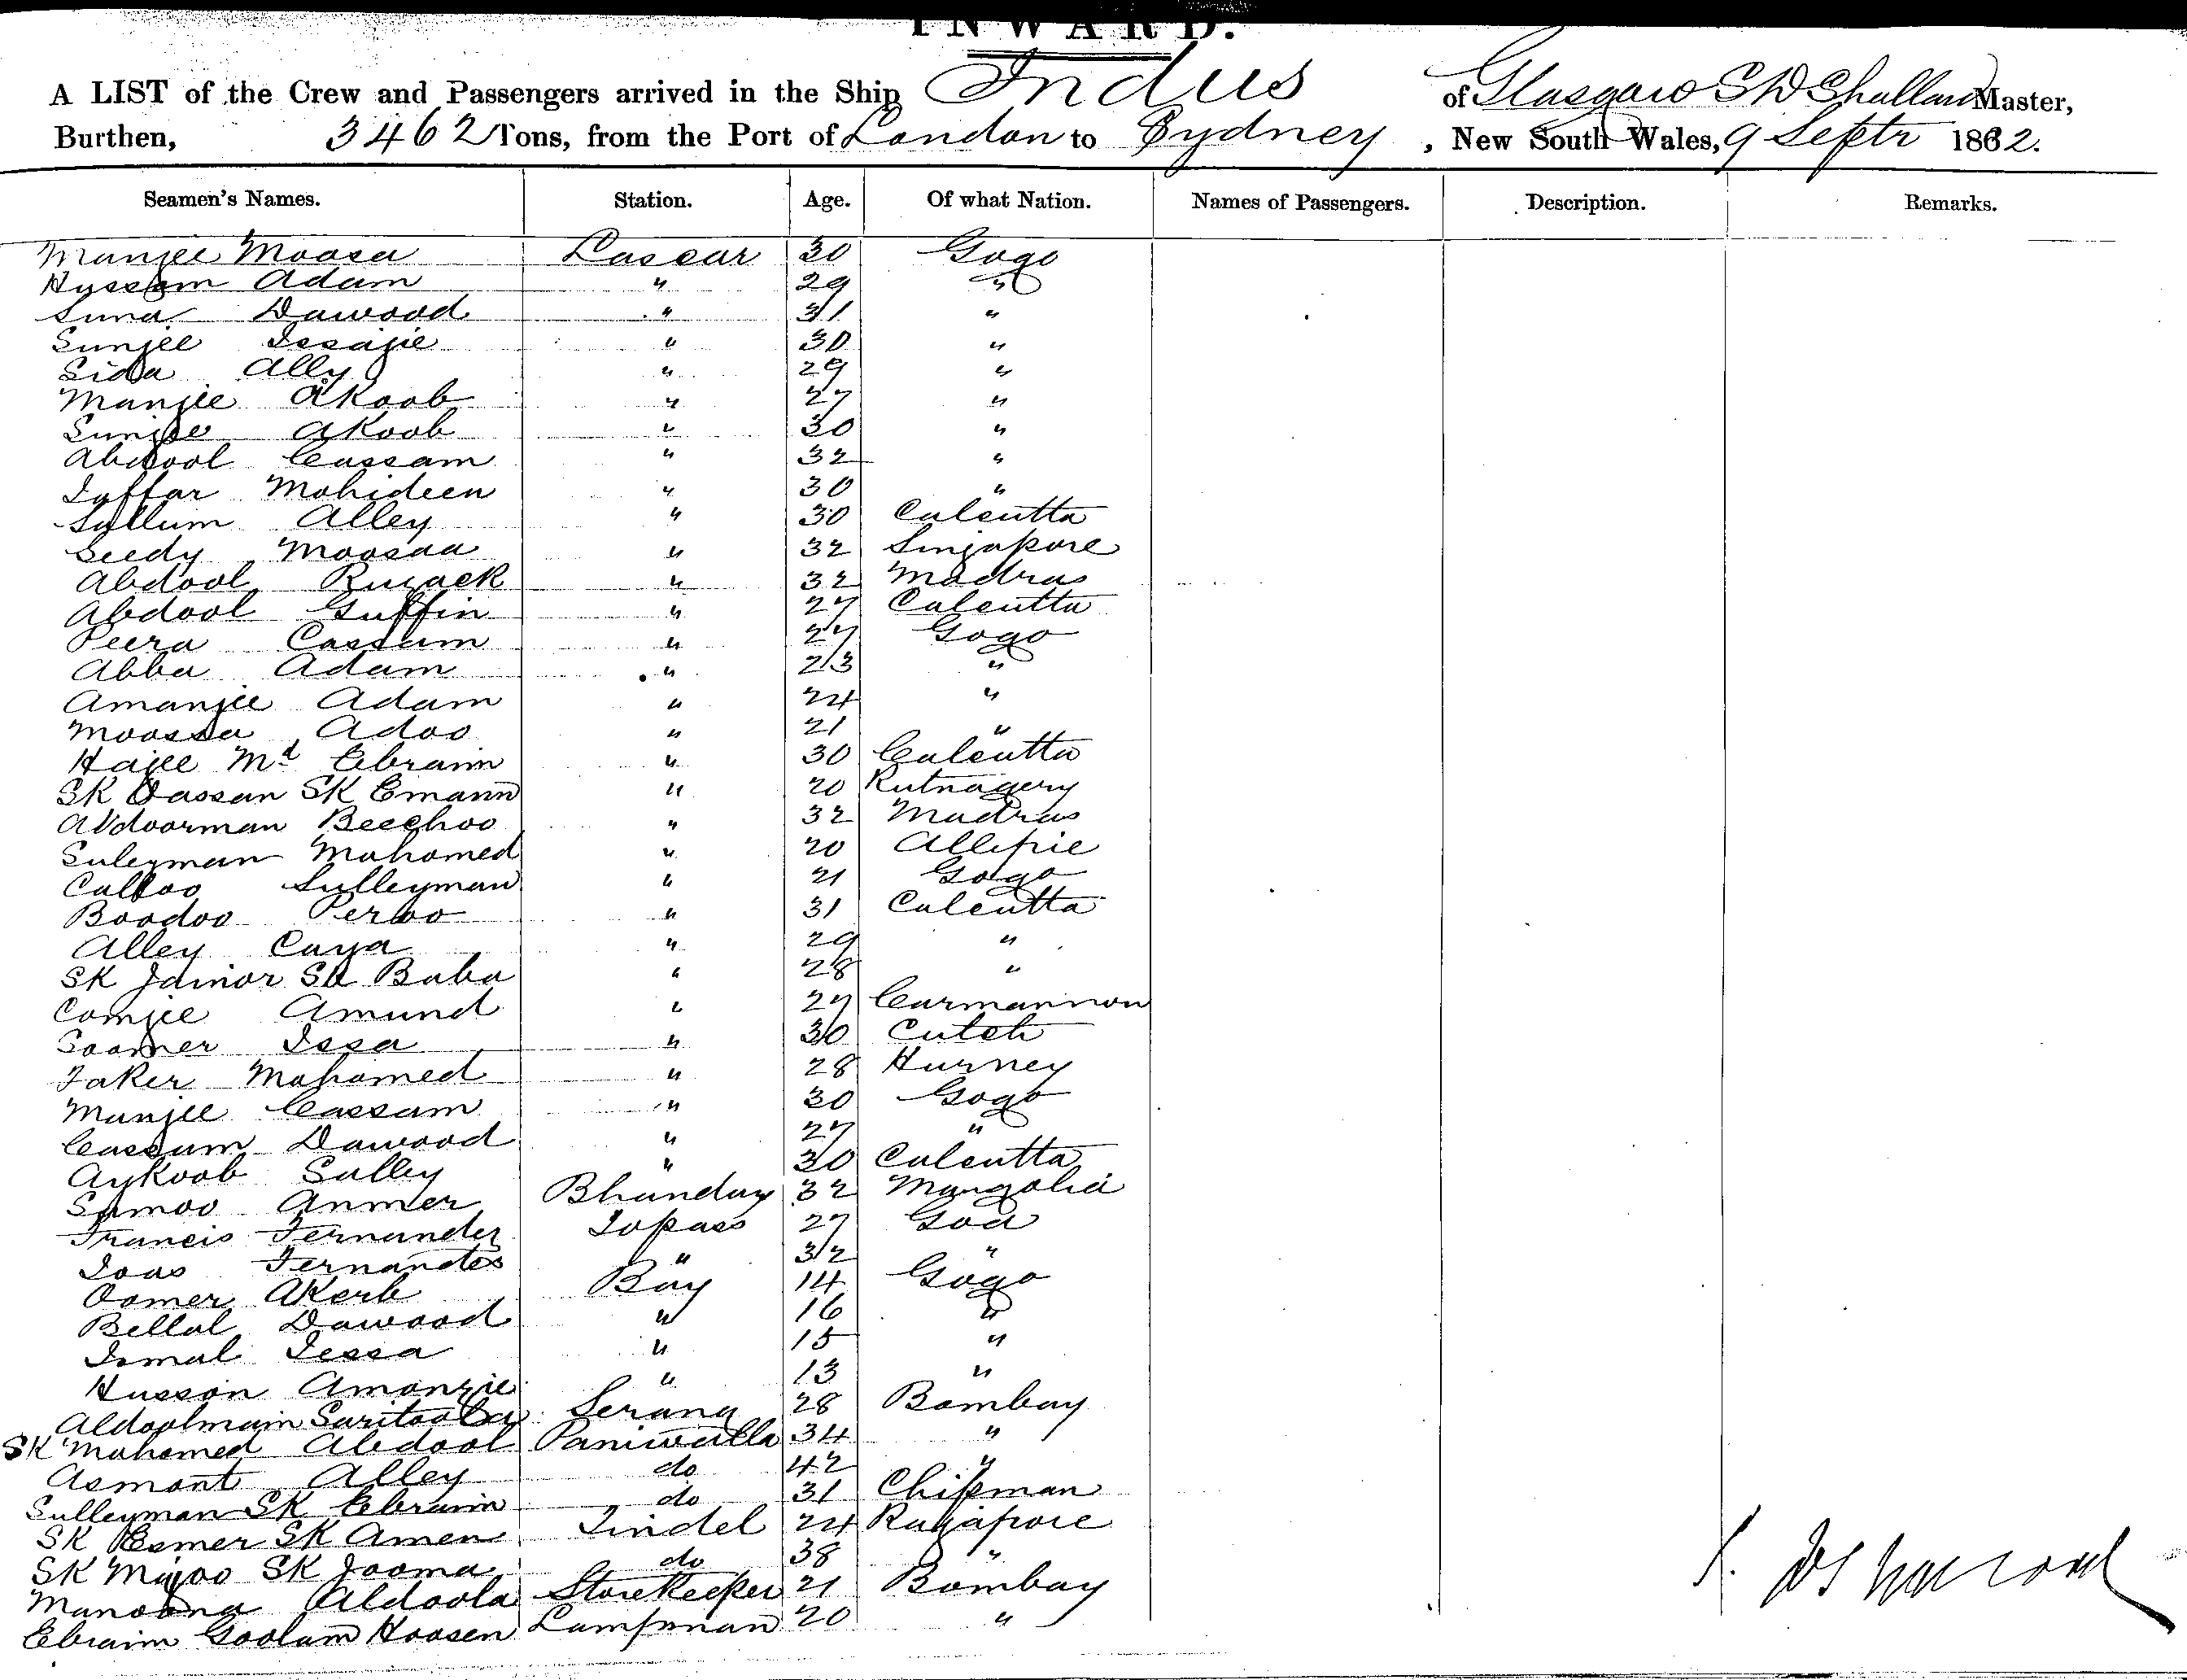 INWARD.
A LIST of the Crew and Passengers arrived in the Ship Indus of Glasgow S W Shalland Master,
Burthen, 3462 Tons, from the Port of London to Sydney, New South Wales, 9 Septr 1882.
Seamen's Names. Station. Age. Of what Nation. Names of Passengers. Description. Remarks.
Munjee Moosa Lascar 30 Gogo
Hyssom Adam " 29 "
Suna Dawood " 31 "
Sunjee Issajie " 30 "
Sida Ally " 29 "
Manjee Akoob " 27 "
Sunjee Akoob " 30 "
Abdool Cassam " 32 "
Jyffar Mohideen " 30 "
Sullum Alley " 30 Calcutta
Seedy Moosaa " 32 Singapore
Abdool Rujack " 32 Madras
Abdool Guffin " 27 Calcutta
Peera Cassum " 27 Gogo
Abba Adam " 23 "
Amanjee Adam " 24 "
Moossa Adoo " 21 "
Hajee Md Ebraim " 30 Calcutta
SK Dassan SK Emann " 20 Rutnagery
Abdoorman Beechoo " 32 Madras
Suleyman Mahomed " 20 Allepie
Calloo Sulleyman " 21 Gogo
Boodoo Perboo " 31 Calcutta
Alley Caya " 29 "
SK Jainor SK Baba " 28 "
Comjee Amund " 27 Carmannon
Soomer Issa " 30 Cutch
Faker Mahomed " 28 Hurney
Munjee Cassam " 30 Gogo
Cassum Dawood " 27 "
Aykoob Sulley " 30 Calcutta
Samoo Anmer Bhunday 32 Mangolia
Francis Fernandez Topass 27 Goa
Joao Fernandes " 32 "
Oomer Akerb Boy 14 Gogo
Bellal Dawood " 16 "
Ismal Iessa " 15 "
Husson Amonzie " 13 "
Aldoolmain Serang 28 Bombay
SK Mahomed Abdool Paniwalla 34 "
Asmont Alley do 42 "
Sulleyman SK Ebraim do 31 Chipman
SK Esmer SK Amen Tindel 24 Rajapore
SK Mijoo SK Jooma do 38 "
Manoona Aldoola Storekeeper 21 Bombay
Ebraim Goolam Hoosen Lampman 20 "